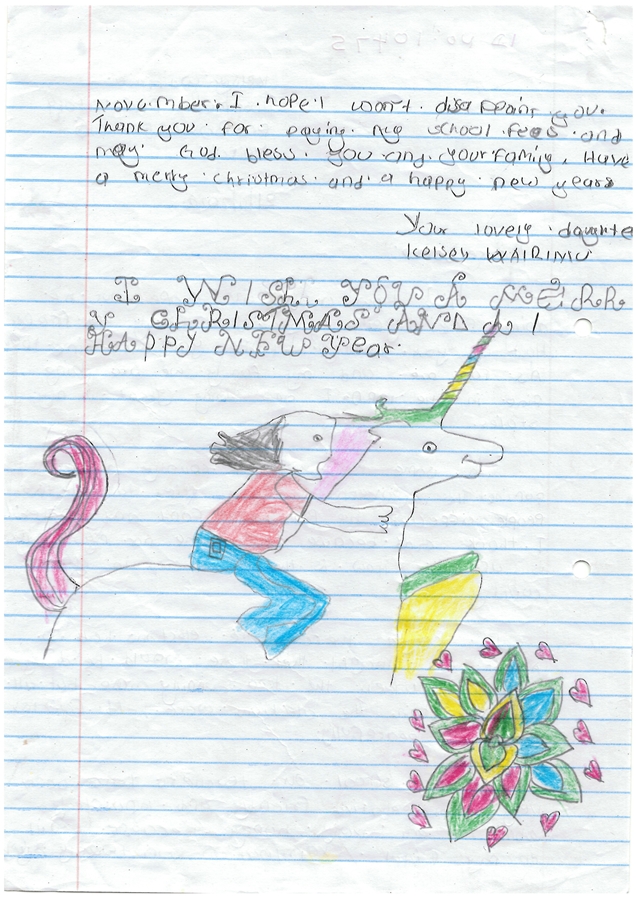 November. I hope I won't disappoint you.
Thank you for paying my school fees and
may God bless you and your family. Have
a merry christmas and a happy new years
Your lovely daughte
Kelsey WAIRIMU
I WISH YOU A MERR
y CHRISTMAS AND A
HAPPY NEW Year.